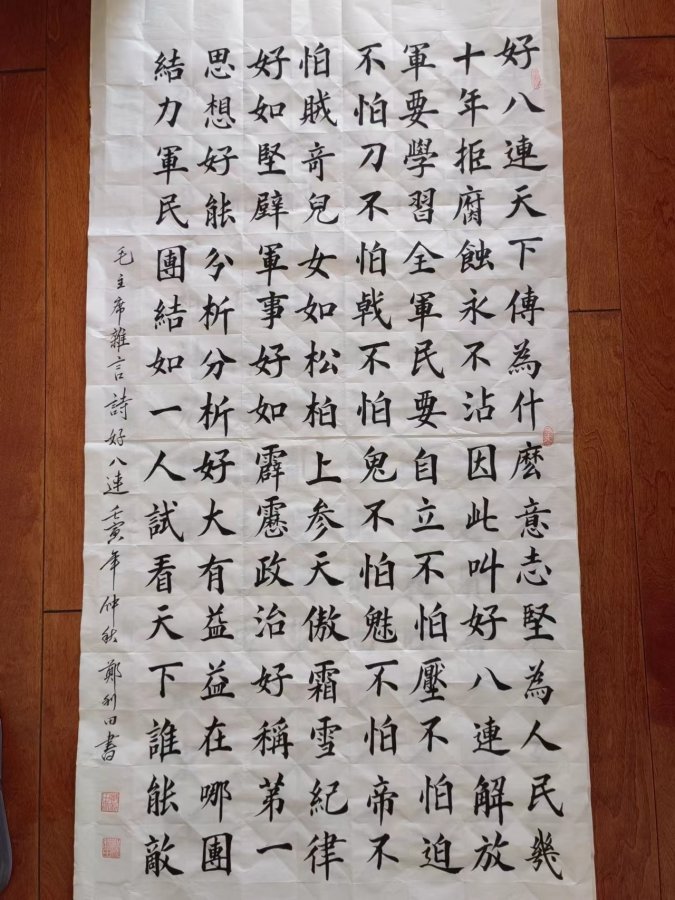 好八連天下傳為什麼意志堅為人民幾
十年拒腐蝕永不沾因此叫好八連解放
軍要學習全軍民要自立不怕壓不怕迫
不怕刀不怕戟不怕鬼不怕魅不怕帝不
怕賊奇兒女如松柏上参天傲霜雪紀律
好如堅壁軍事好如霹靂政治好稱第一
思想好能分析分析好大有益益在哪團
結力軍民團結如一人試看天下誰能敵
毛主席雜言詩好八連壬寅年仲秋鄭利田書